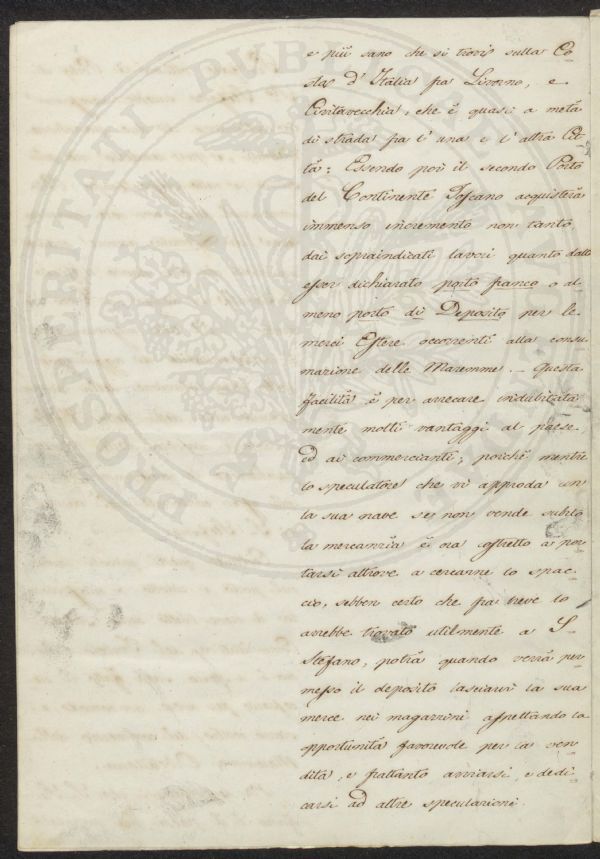 e più sano che si trovi sulla Co-
sta d'Italia fra Livorno, e
Civitavecchia, che è quasi a metà
di strada fra l'una e l'altra Cit-
tà: Essendo poi il secondo Porto
del Continente Toscano acquisterà
immenso incremento non tanto
dai sopraindicati lavori quanto dallo
esser dichiarato porto franco o al-
meno porto di Deposito per le
merci Estere occorrenti alla consu-
mazione delle Maremme. — Questa
facilità è per arrecare indubitata-
mente molti vantaggi al paese
ed ai commercianti; poichè mentre
lo speculatore che vi approda con
la sua nave se non vende subito
la mercanzia è ora costretto a por-
tarsi altrove a cercarne lo spac-
cio, sebben certo che fra breve lo
avrebbe trovato utilmente a S.
Stefano, potrà quando verrà per-
messo il deposito lasciarvi la sua
merce nei magazzini aspettando la
opportunità favorevole per la ven-
dita, e frattanto avviarsi, e dedi-
carsi ad altre speculazioni.
PROSPERITATI PVBLICAE